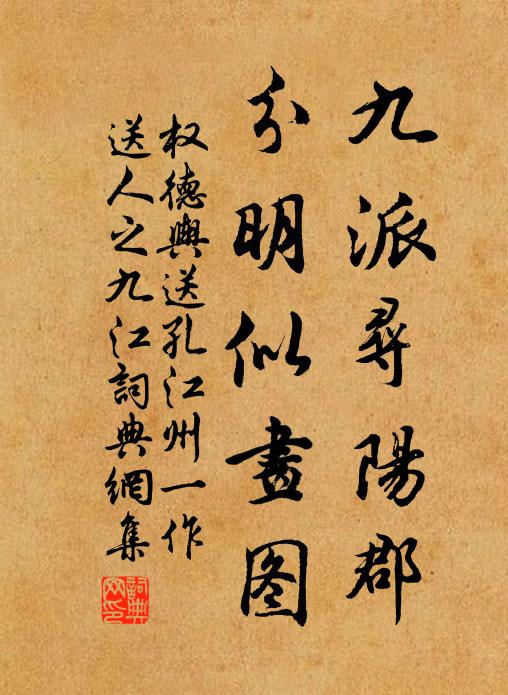 九派尋陽郡
分明似畫图
权德輿送孔江州一作
送人之九江詞典網集
詞典
网印